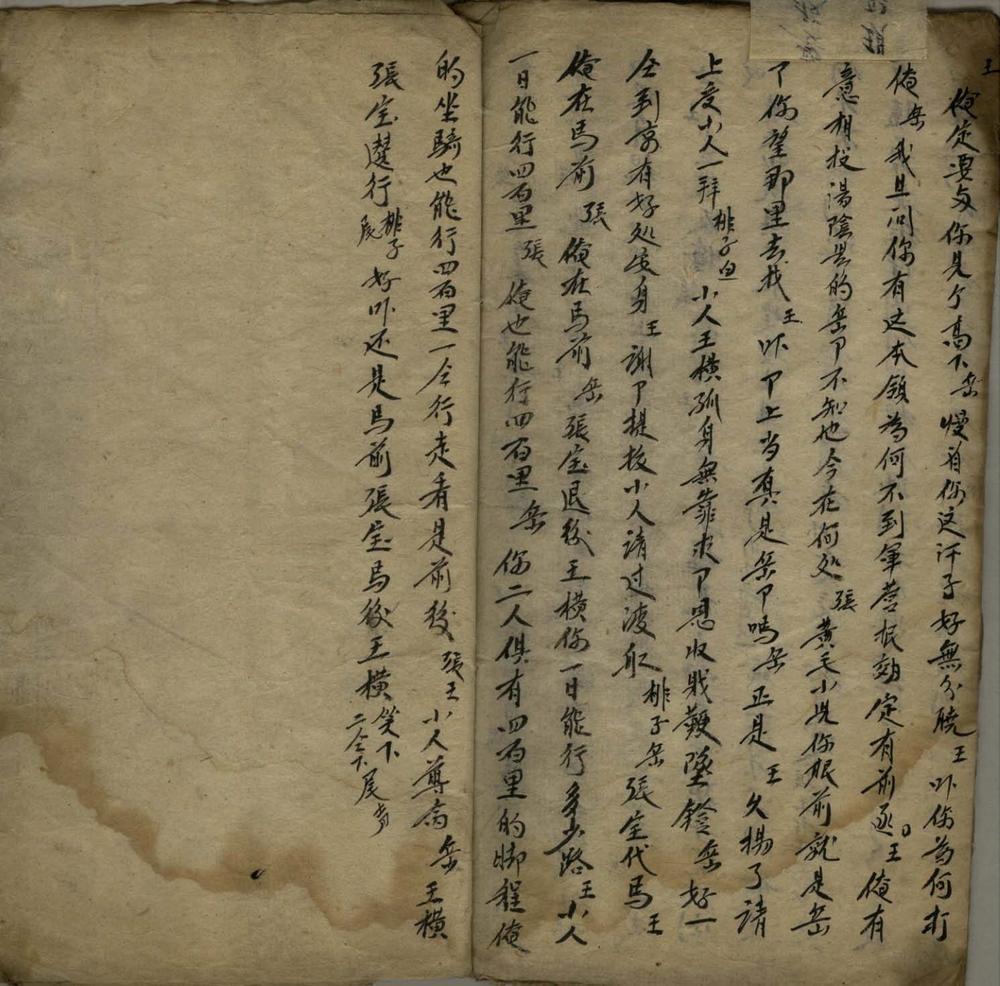 王
俺定要与你見个高下岳慢着你这汗子好無分曉王吥你為何打
俺岳我且问你有这本領為何不到軍营投効定有前丞王俺有
意相投湯陰县的岳卩不知他今在何処張黄毛小児你眼前就是岳
卩你望那里去找王吥卩上当真是岳卩嗎岳正是王久揚了請
上受小人一拜排子白小人王横孤身無靠求卩恩收戝鞭墜鐙岳好一
仝到京有好処安身王謝卩提拔小人請过渡舡排子岳張宝代馬王
俺在馬前張俺在馬前岳張宝退後王横你一日能行多少路王小人
一日能行四百里張俺也能行四百里岳你二人俱有四百里的脚程俺
的坐騎也能行四百里一仝行走看是前後張王小人尊命岳王横
張宝遼行排子尾好吥还是馬前張宝馬後王横笑下二仝下尾声